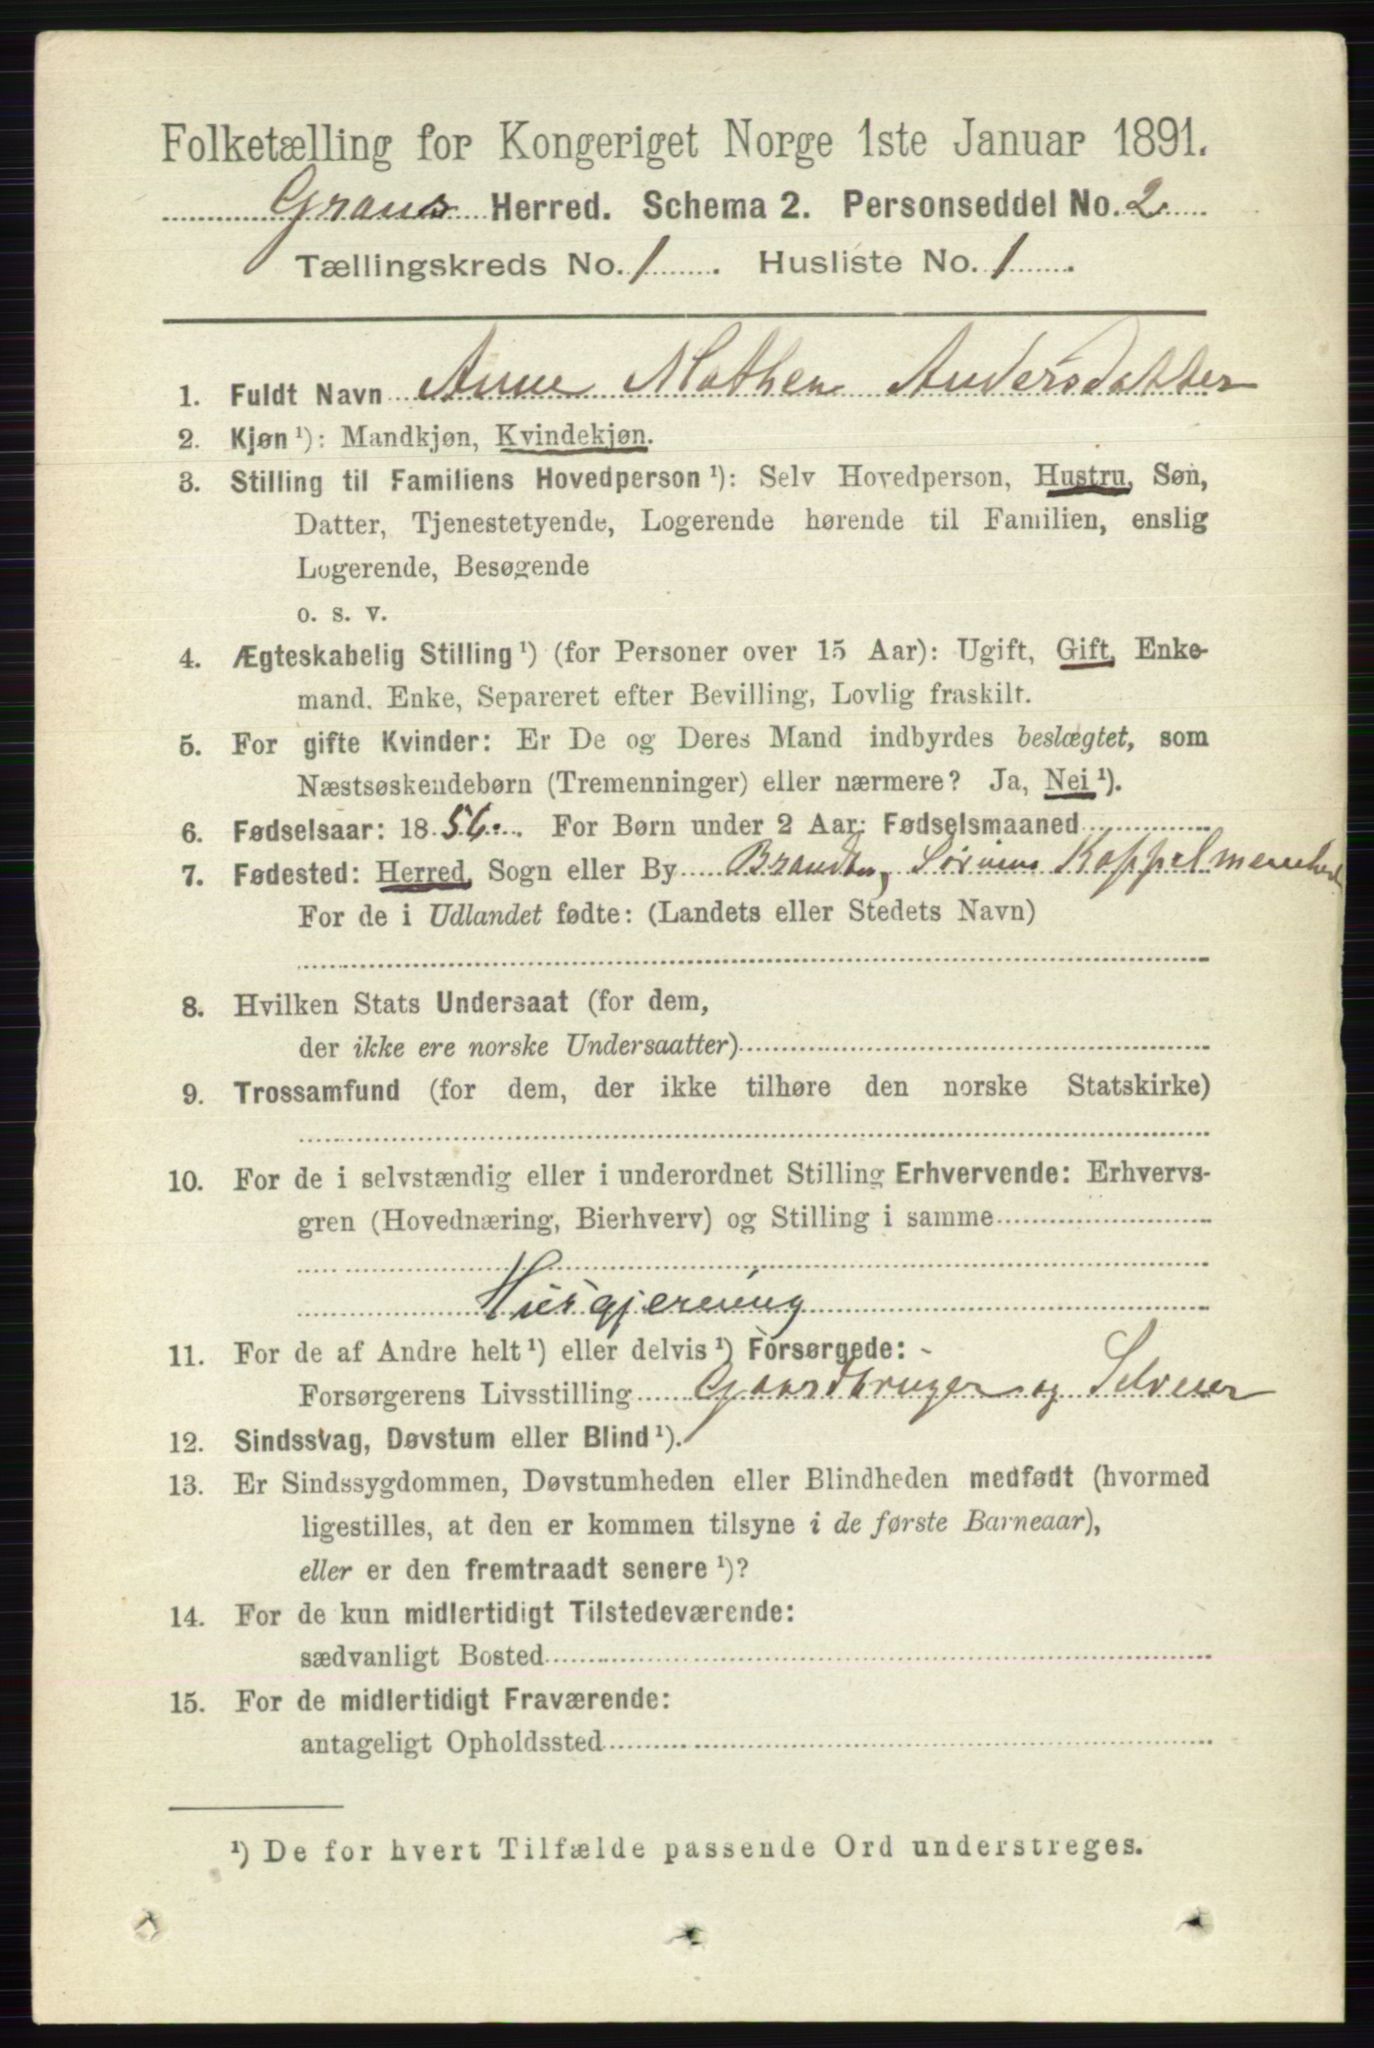 Folketælling for Kongeriget Norge 1ste Januar 1891.
Grans Herred. Schema 2. Personseddel No. 2
Tællingskreds No. 1. Husliste No. 1.
1. Fuldt Navn Anne Mathea Andersdatter
2. Kjøn ¹): Mandkjøn, Kvindekjøn.
3. Stilling til Familiens Hovedperson ¹): Selv Hovedperson, Hustru, Søn,
Datter, Tjenestetyende, Logerende hørende til Familien, enslig
Logerende, Besøgende
o. s. v.
4. Ægteskabelig Stilling ¹) (for Personer over 15 Aar): Ugift, Gift, Enke-
mand. Enke, Separeret efter Bevilling, Lovlig fraskilt.
5. For gifte Kvinder: Er De og Deres Mand indbyrdes beslægtet, som
Næstsøskendebørn (Tremenninger) eller nærmere? Ja, Nei ¹).
6. Fødselsaar: 1856. For Børn under 2 Aar: Fødselsmaaned
7. Fødested: Herred, Sogn eller By Brandbu,
For de i Udlandet fødte: (Landets eller Stedets Navn)
8. Hvilken Stats Undersaat (for dem,
der ikke ere norske Undersaatter)
9. Trossamfund (for dem, der ikke tilhøre den norske Statskirke)
10. For de i selvstændig eller i underordnet Stilling Erhvervende: Erhvervs-
gren (Hovednæring, Bierhverv) og Stilling i samme
Husgjerning
11. For de af Andre helt ¹) eller delvis ¹) Forsørgede:
Forsørgerens Livsstilling Gaardbruger og Selveier
12. Sindssvag, Døvstum eller Blind ¹).
13. Er Sindssygdommen, Døvstumheden eller Blindheden medfødt (hvormed
ligestilles, at den er kommen tilsyne i de første Barneaar),
eller er den fremtraadt senere ¹)?
14. For de kun midlertidigt Tilstedeværende:
sædvanligt Bosted
15. For de midlertidigt Fraværende:
antageligt Opholdssted
¹) De for hvert Tilfælde passende Ord understreges.